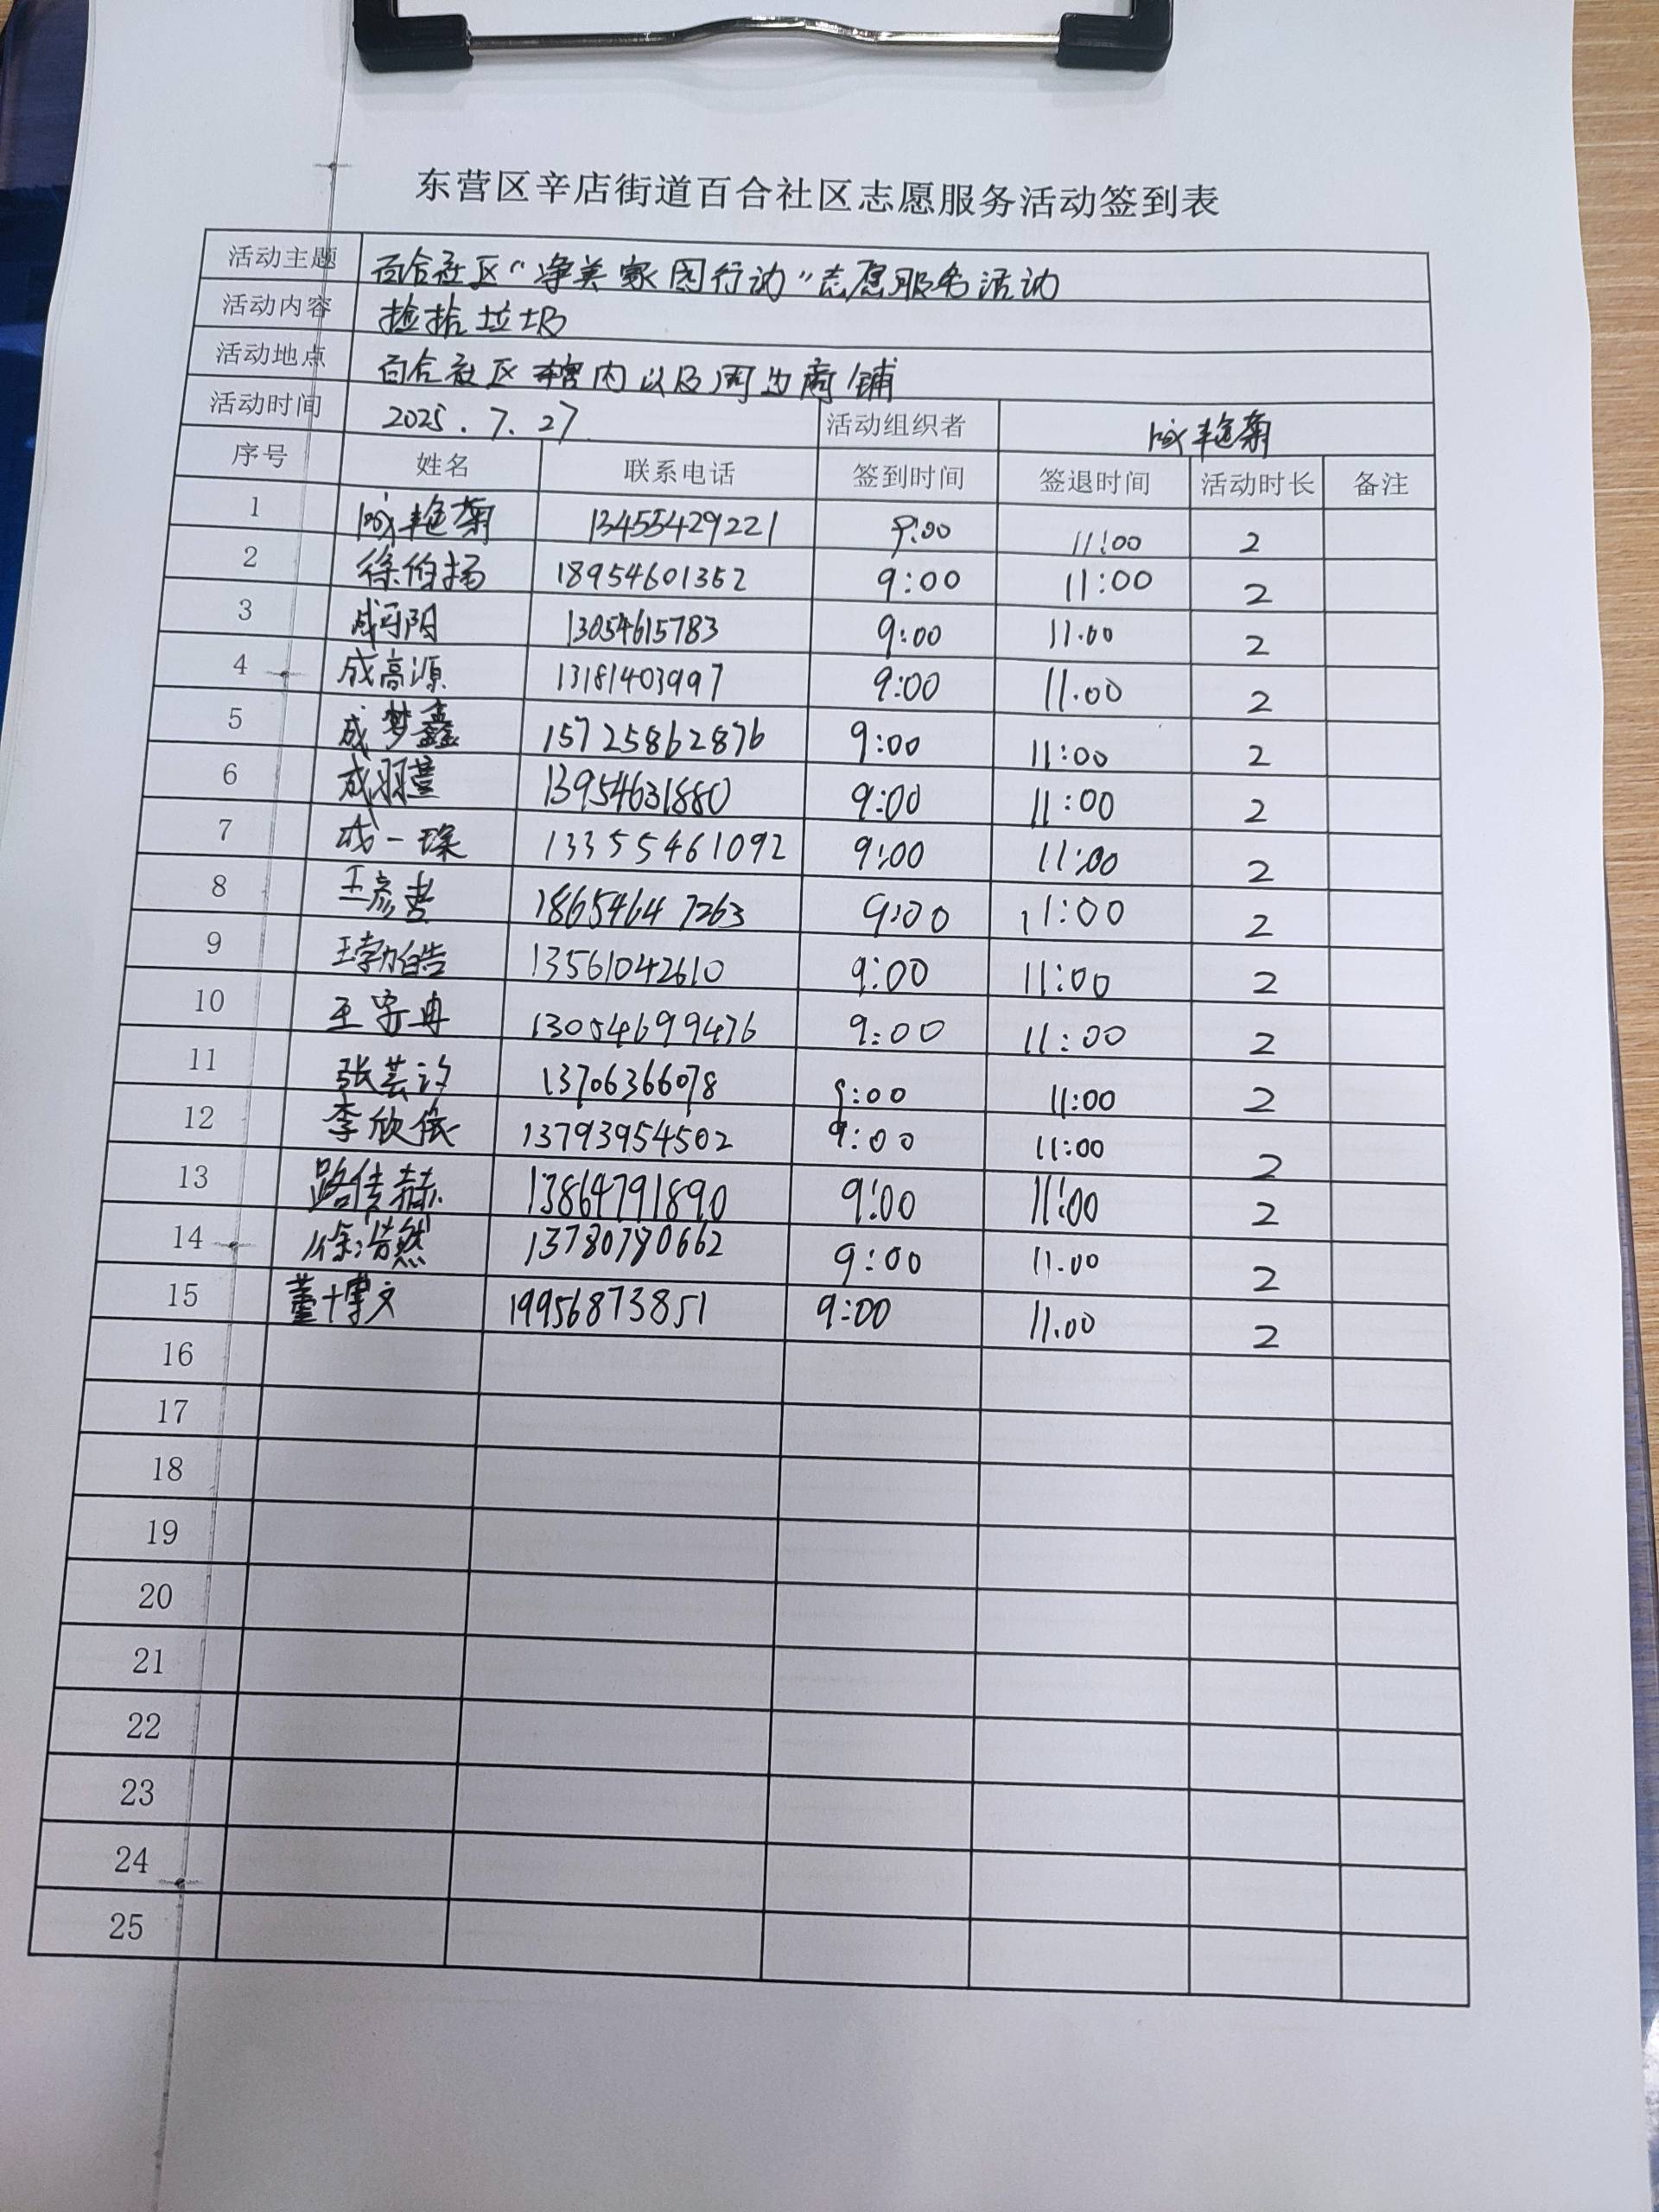 东营区辛店街道百合社区志愿服务活动签到表
活动主题 百合社区“净美家园行动”志愿服务活动
活动内容 捡拾垃圾
活动地点 百合社区辖内以及周边商铺
活动时间 2025.7.27 活动组织者 艳菊
序号 姓名 联系电话 签到时间 签退时间 活动时长 备注
1 艳菊 13455429221 9:00 11:00 2
2 徐伯扬 18954601352 9:00 11:00 2
3 13054615783 9:00 11.00 2
4 成高源 13181403997 9:00 11.00 2
5 成梦鑫 15725862876 9:00 11:00 2
6 成羽萱 13954631880 9:00 11:00 2
7 成一琛 13355461092 9:00 11:00 2
8 王彦哲 18654647263 9:00 11:00 2
9 王勃皓 13561042610 9:00 11:00 2
10 王宇冉 13054699476 9:00 11:00 2
11 张芸汐 13706366078 9:00 11:00 2
12 李欣依 13793954502 9:00 11:00 2
13 路传赫 13864791890 9:00 11:00 2
14 徐浩然 13780790662 9:00 11.00 2
15 董博文 19956873851 9:00 11.00 2
16
17
18
19
20
21
22
23
24
25